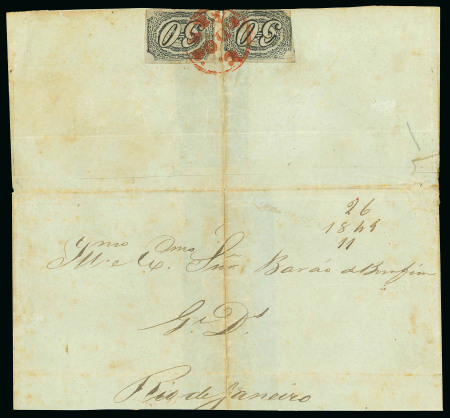 30 30
26
1849
11
Illmo e Exmo Snr Barão d Bomfim
Gde Ds
Rio de Janeiro